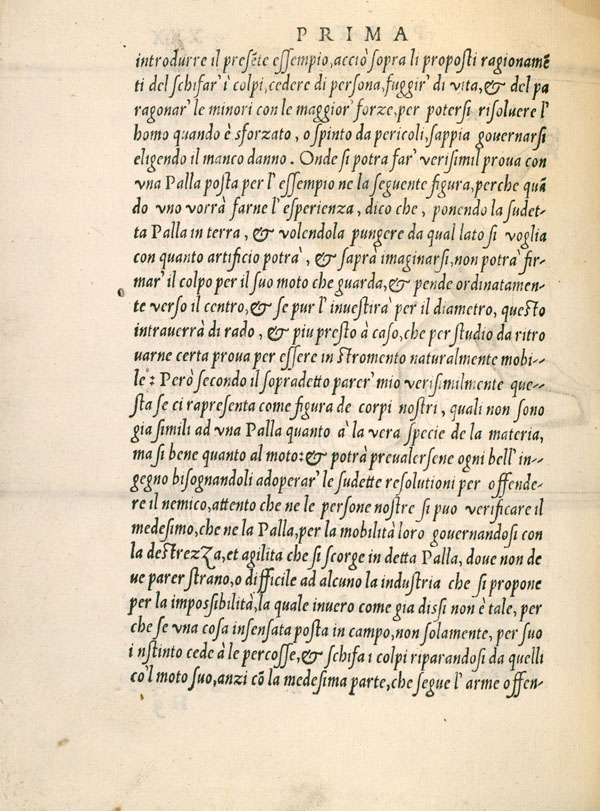 PRIMA
introdurre il presẽte essempio, acciò sopra li proposti ragionamẽ
ti del schifar' i colpi, cedere di persona, fuggir' di vita, & del pa
ragonar' le minori con le maggior' forze, per potersi risoluere l'
homo quando è sforzato, o spinto da pericoli, sappia gouernarsi
eligendo il manco danno. Onde si potra far' verisimil proua con
vna Palla posta per l'essempio ne la seguente figura, perche quã
do vno vorrà farne l'esperienza, dico che, ponendo la sudet-
ta Palla in terra, & volendola pungere da qual lato si voglia
con quanto artificio potrà, & saprà imaginarsi, non potrà fir-
mar' il colpo per il suo moto che guarda, & pende ordinatamen-
te verso il centro, & se pur l'inuestirà per il diametro, questo
intrauerrà di rado, & piu presto à caso, che per studio da ritro
uarne certa proua per essere in stromento naturalmente mobi--
le: Però secondo il sopradetto parer' mio verisimilmente que--
sta se ci rapresenta come figura de corpi nostri, quali non sono
gia simili ad vna Palla quanto à la vera specie de la materia,
ma si bene quanto al moto: & potrà preualersene ogni bell' in-
gegno bisognandoli adoperar' le sudette resolutioni per offende-
re il nemico, attento che ne le persone nostre si puo verificare il
medesimo, che ne la Palla, per la mobilità loro gouernandosi con
la destrezza, et agilita che si scorge in detta Palla, doue non de
ue parer strano, o difficile ad alcuno la industria che si propone
per la impossibilità, la quale inuero come gia dissi non è tale, per
che se vna cosa insensata posta in campo, non solamente, per suo
i nstinto cede à le percosse, & schifa i colpi riparandosi da quelli
co'l moto suo, anzi cõ la medesima parte, che segue l'arme offen-